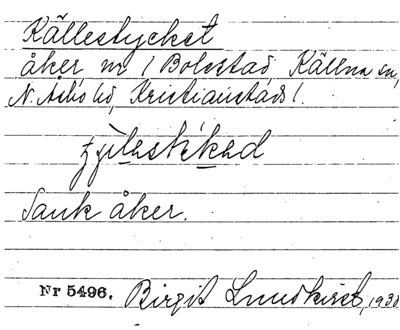 Källestycket
åker nr 1 Bolestad Källna sn,
N. Åsbo hd, Kristianstads l.
Sank åker.
Nr 5496. Birgit 1930